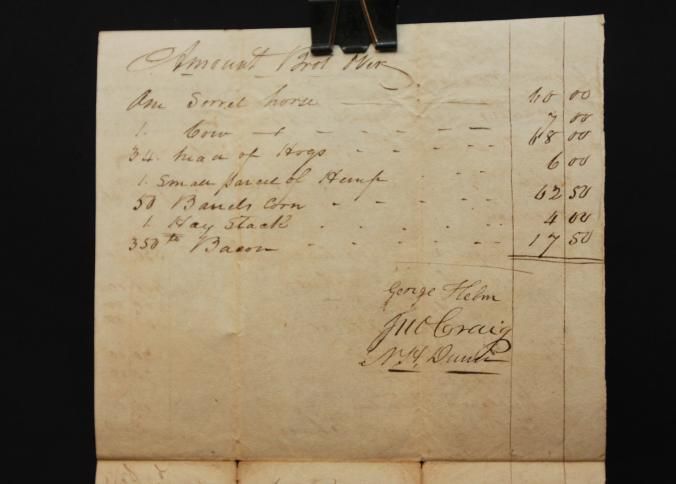 Amount Brot Over
One Sorrel horse 60 00
1. Cow 7 00
34. head of Hogs 68 00
1. Small parcel of Hemp 6 00
50 Barrels Corn 62 50
1 Hay Stack 4 00
350 lb Bacon 17 50
George Helm
Jno Craig